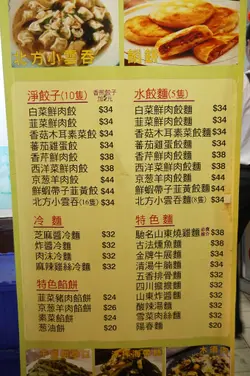 北方小雲吞
淨餃子(10隻)
白菜鮮肉餃 $34
韮菜鮮肉餃 $34
香菇木耳素菜餃 $34
蕃茄雞蛋餃 $34
香芹鮮肉餃 $34
西洋菜鮮肉餃 $34
京葱羊肉餃 $34
鮮蝦帶子韮黃餃 $44
北方小雲吞(16隻) $34
水餃麵(5隻)
白菜鮮肉餃麵 $34
韮菜鮮肉餃麵 $34
香菇木耳素菜餃麵 $34
蕃茄雞蛋餃麵 $34
香芹鮮肉餃麵 $34
西洋菜鮮肉餃麵 $34
京葱羊肉餃麵 $34
鮮蝦帶子韮黃餃麵 $44
北方小雲吞麵(8隻) $34
冷麵
芝麻醬冷麵 $32
炸醬冷麵 $32
肉沫冷麵 $32
麻辣雞絲冷麵 $32
特色餡餅
韮菜豬肉餡餅 $24
京葱羊肉餡餅 $26
素菜餡餅 $24
葱油餅 $20
特色麵
馳名山東燒雞麵 $38
古法燻魚麵 $38
金牌牛展麵 $38
清湯牛腩麵 $38
五香排骨麵 $38
四川擔擔麵 $32
山東炸醬麵 $32
酸辣湯麵 $32
雪菜肉絲麵 $32
陽春麵 $20